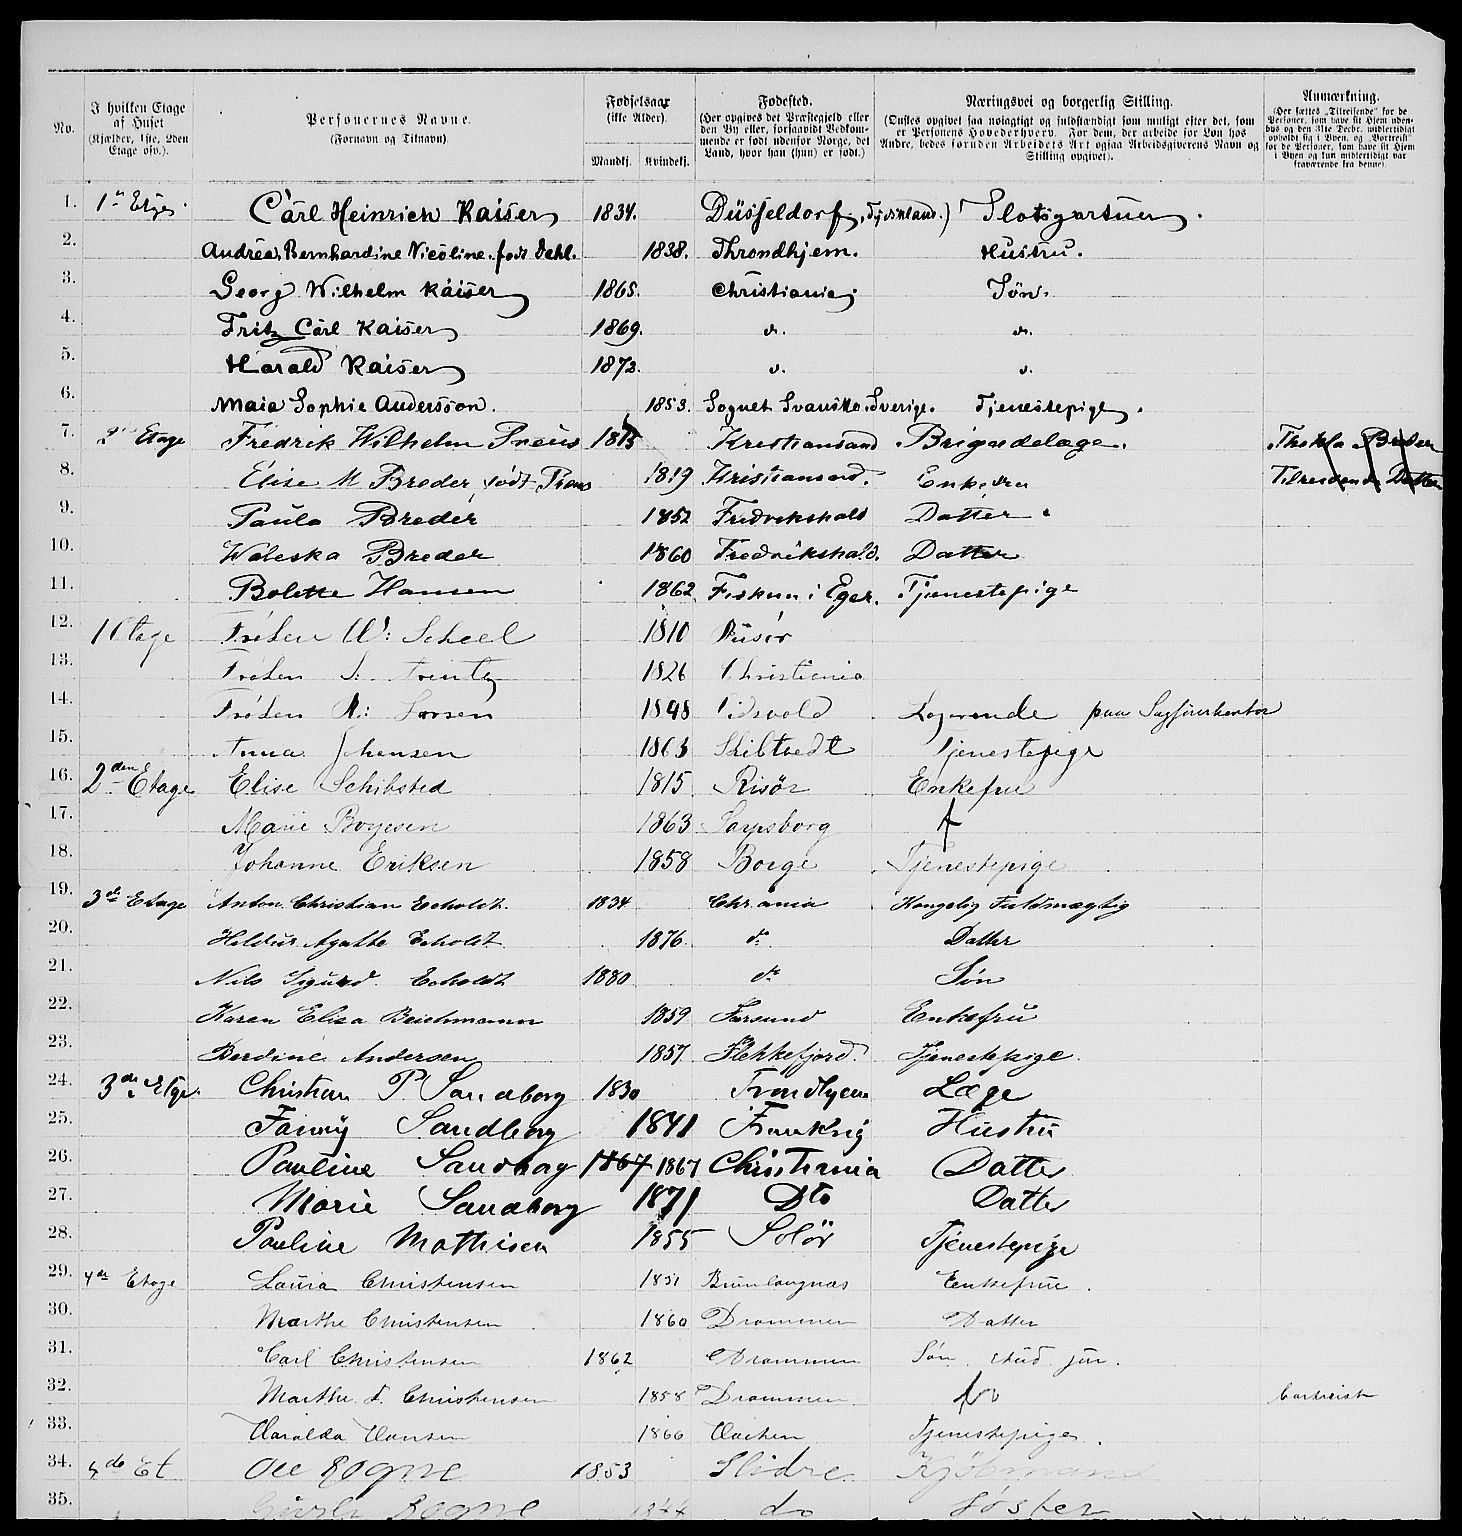 No.
I hvilken Etage af Huset (Kjælder, 1ste, 2den Etage osv.).
Personernes Navne. (Fornavn og Tilnavn).
Fødselsaar (ikke Alder). Mandkj. Kvindekj.
Fødested. (Her opgives det Præstegjeld eller den By eller, forsaavidt Vedkommende er født udenfor Norge, det Land, hvor han (hun) er født.)
Næringsvei og borgerlig Stilling. (Ønskes opgivet saa nøiagtigt og fuldstændigt som muligt efter det, som er Personens Hovederhverv. For dem, der arbeide for Løn hos Andre, bedes foruden Arbeidets Art ogsaa Arbeidsgiverens Navn og Stilling opgivet).
Anmærkning. (Her sættes „Tilreisende" for de Personer, som have sit Hjem udenbys og den 31te Decbr. midlertidigt opholdt sig i Byen, og „Bortreist" for de Personer, som have sit Hjem i Byen og kun midlertidigt var fraværende fra denne).
1. Carl Heinrich Kaiser 1834. Düsseldorf, Tydskland.) Slotsgartner.
2. Andrea Bernhardine Nicoline. født Dahl. 1838. Throndhjem. Hustru.
3. Georg Wilhelm Kaiser 1865. Christiania Søn.
4. Fritz Carl Kaiser 1869.
5. Harald Kaiser 1872.
6. Maia Sophie Andersson. 1853. Sognet Sverige. Tjenestepige.
7. 2 Etage Fredrik Wilhelm Preus 1815 Kristiansand Brigadelæge. Thekla Breder
8. Elise M Breder, født Preus 1819 Kristiansand. Enkefru Tilreisende Datter
9. Paula Breder 1852 Fredrikshald Datter
10. Waleska Breder 1860 Fredrikshald. Datter
11. Bolette Hansen 1862 Fiskum i Eger. Tjenestepige
12. 1 Etage Frøken W: Scheel 1810
13. Frøken 1826 Christiania
14. Frøken 1848 Eidsvold Logerende paa Sagførerkontor
15. Anna Johansen 1863 Skibtvedt Tjenestepige
16. 2den Etage Elise Schibsted 1815 Risör Enkefru
17. Marie Boyesen 1863 Sarpsborg
18. Johanne Eriksen 1858 Borge Tjenestepige
19. 3de Etage Anton Christian Echoldt. 1834 Chr.ania Kongelig Fuldmægtig
20. Agathe Echoldt 1876. do Datter
21. Nils Sigurd Echoldt 1880 do Søn
22. Karen Elisa Beichmann 1859 Farsund Enkefru
23. Berdine Andersen 1857. Flekkefjord. Tjenestepige.
24. 3de Etge. Christian P Sandberg 1830 Trondhjem Læge
25. Fanny Sandberg 1841 Frankrig Hustru
26. Pauline Sandberg 1867 1867 Christiania Datter
27. Marie Sandberg 1871 Dto Datter
28. Pauline Mathisen 1855 Solör Tjenestepige
29. 4de Etage Laura Christensen 1831 Brunlangnæs Enkefrue.
30. Marthe Christensen 1860 Drammen Datter
31. Carl Christensen 1862 Drammen Søn stud jur.
32. Marthe Christensen 1858 Drammen. Bortreist
33. Haralda Hansen 1866 Tjenestepige.
34. 4de Et Ole Rogne 1853 Slidre Kjøbmand
35. Rogne do Søster